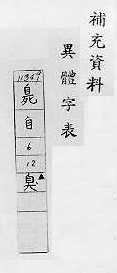 補充資料
異體字表
11349
臰
自
6
12
臭▲